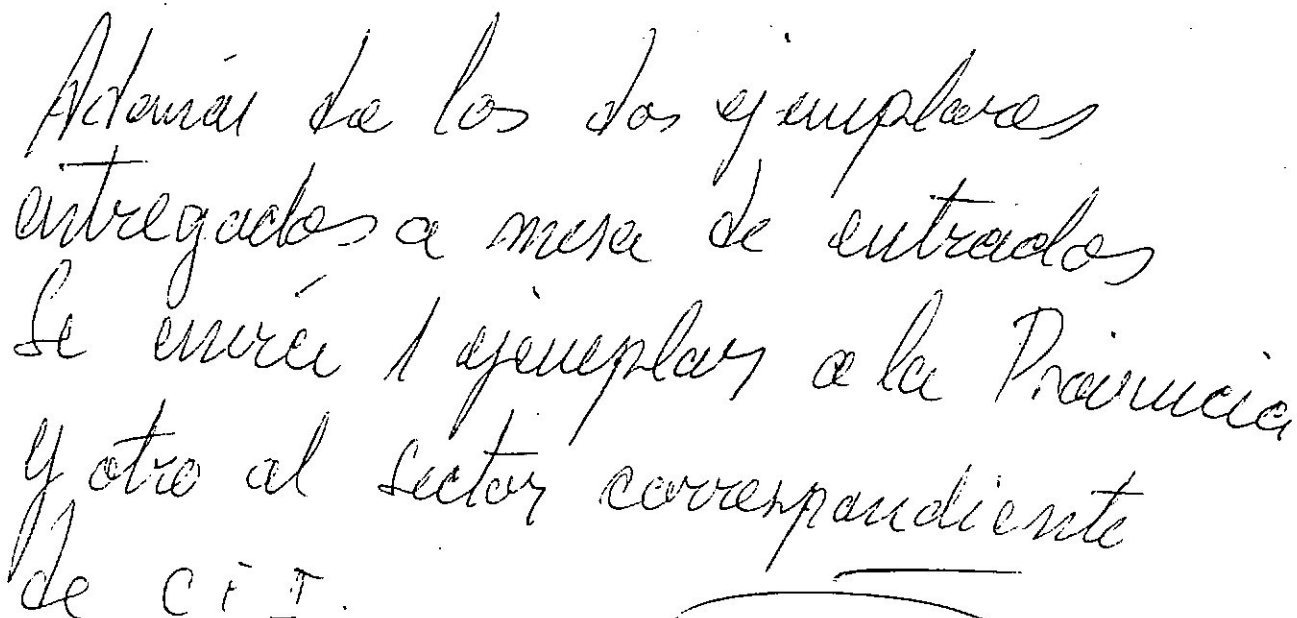 Además de los dos ejemplares
entregados a mesa de entradas
se envía 1 ejemplar a la Provincia
y otro al sector correspondiente
de C F I.